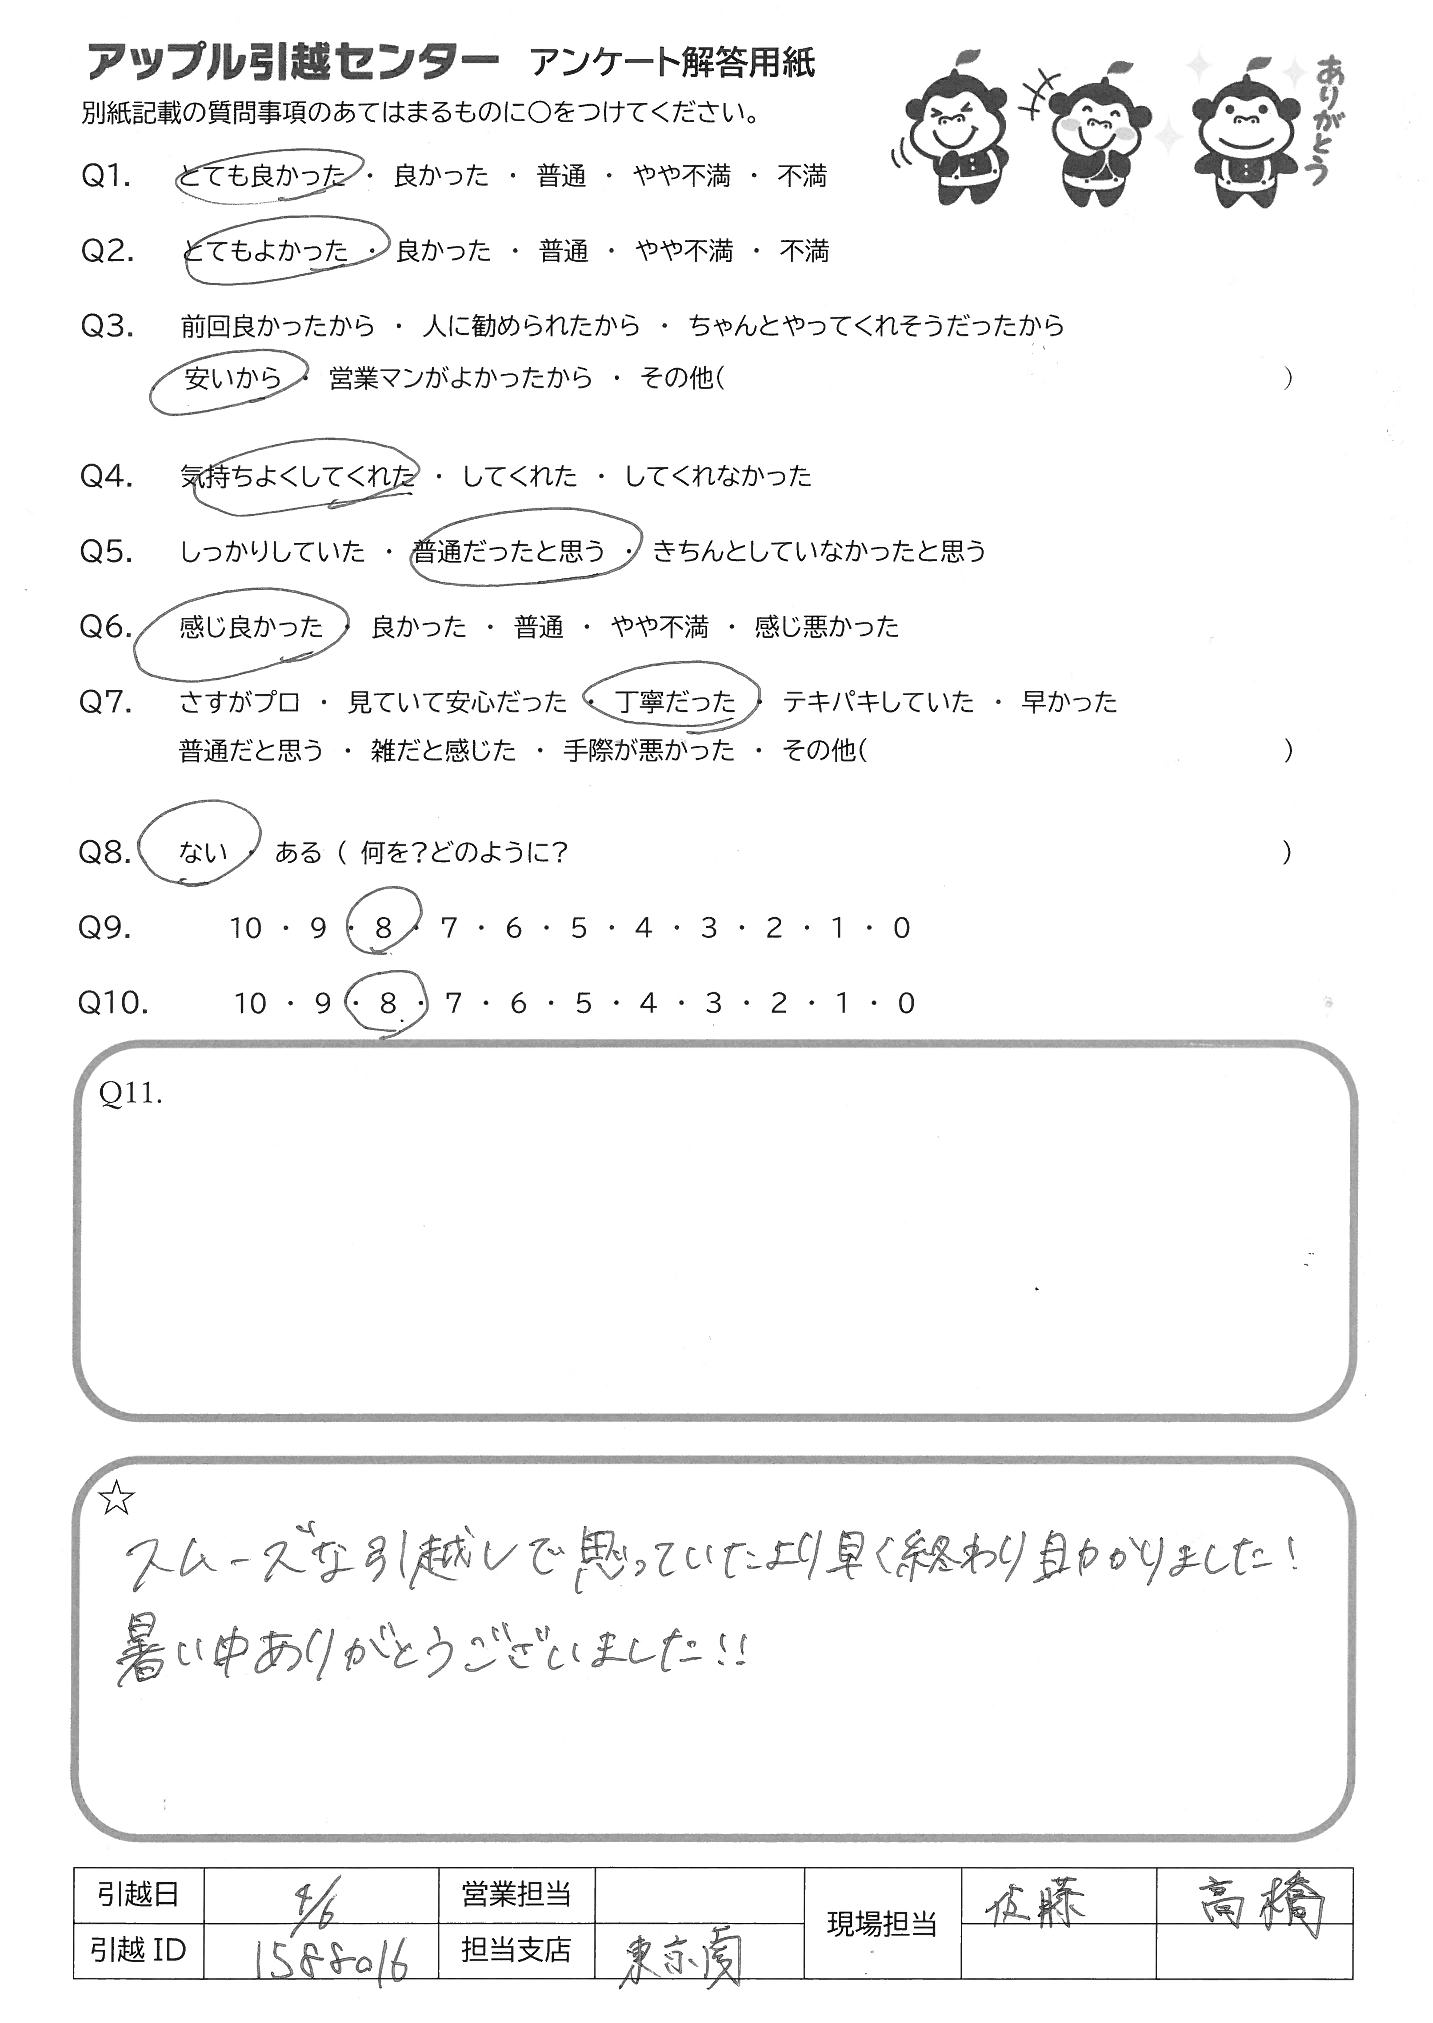 アップル引越センター アンケート解答用紙
ありがとう
別紙記載の質問事項のあてはまるものに〇をつけてください。
Q1. とても良かった ・ 良かった ・ 普通 ・ やや不満 ・ 不満
Q2. とてもよかった ・ 良かった ・ 普通 ・ やや不満 ・ 不満
Q3. 前回良かったから ・ 人に勧められたから ・ ちゃんとやってくれそうだったから
安いから ・ 営業マンがよかったから ・ その他( )
Q4. 気持ちよくしてくれた ・ してくれた ・ してくれなかった
Q5. しっかりしていた ・ 普通だったと思う ・ きちんとしていなかったと思う
Q6. 感じ良かった ・ 良かった ・ 普通 ・ やや不満 ・ 感じ悪かった
Q7. さすがプロ ・ 見ていて安心だった ・ 丁寧だった ・ テキパキしていた ・ 早かった
普通だと思う ・ 雑だと感じた ・ 手際が悪かった ・ その他( )
Q8. ない ・ ある ( 何を?どのように? )
Q9. 10 ・ 9 ・ 8 ・ 7 ・ 6 ・ 5 ・ 4 ・ 3 ・ 2 ・ 1 ・ 0
Q10. 10 ・ 9 ・ 8 ・ 7 ・ 6 ・ 5 ・ 4 ・ 3 ・ 2 ・ 1 ・ 0
Q11.
☆
スムーズな引越しで思っていたより早く終わり助かりました!
暑い中ありがとうございました!!
引越日 4/6 営業担当 現場担当 佐藤 高橋
引越 ID 1588016 担当支店 東京